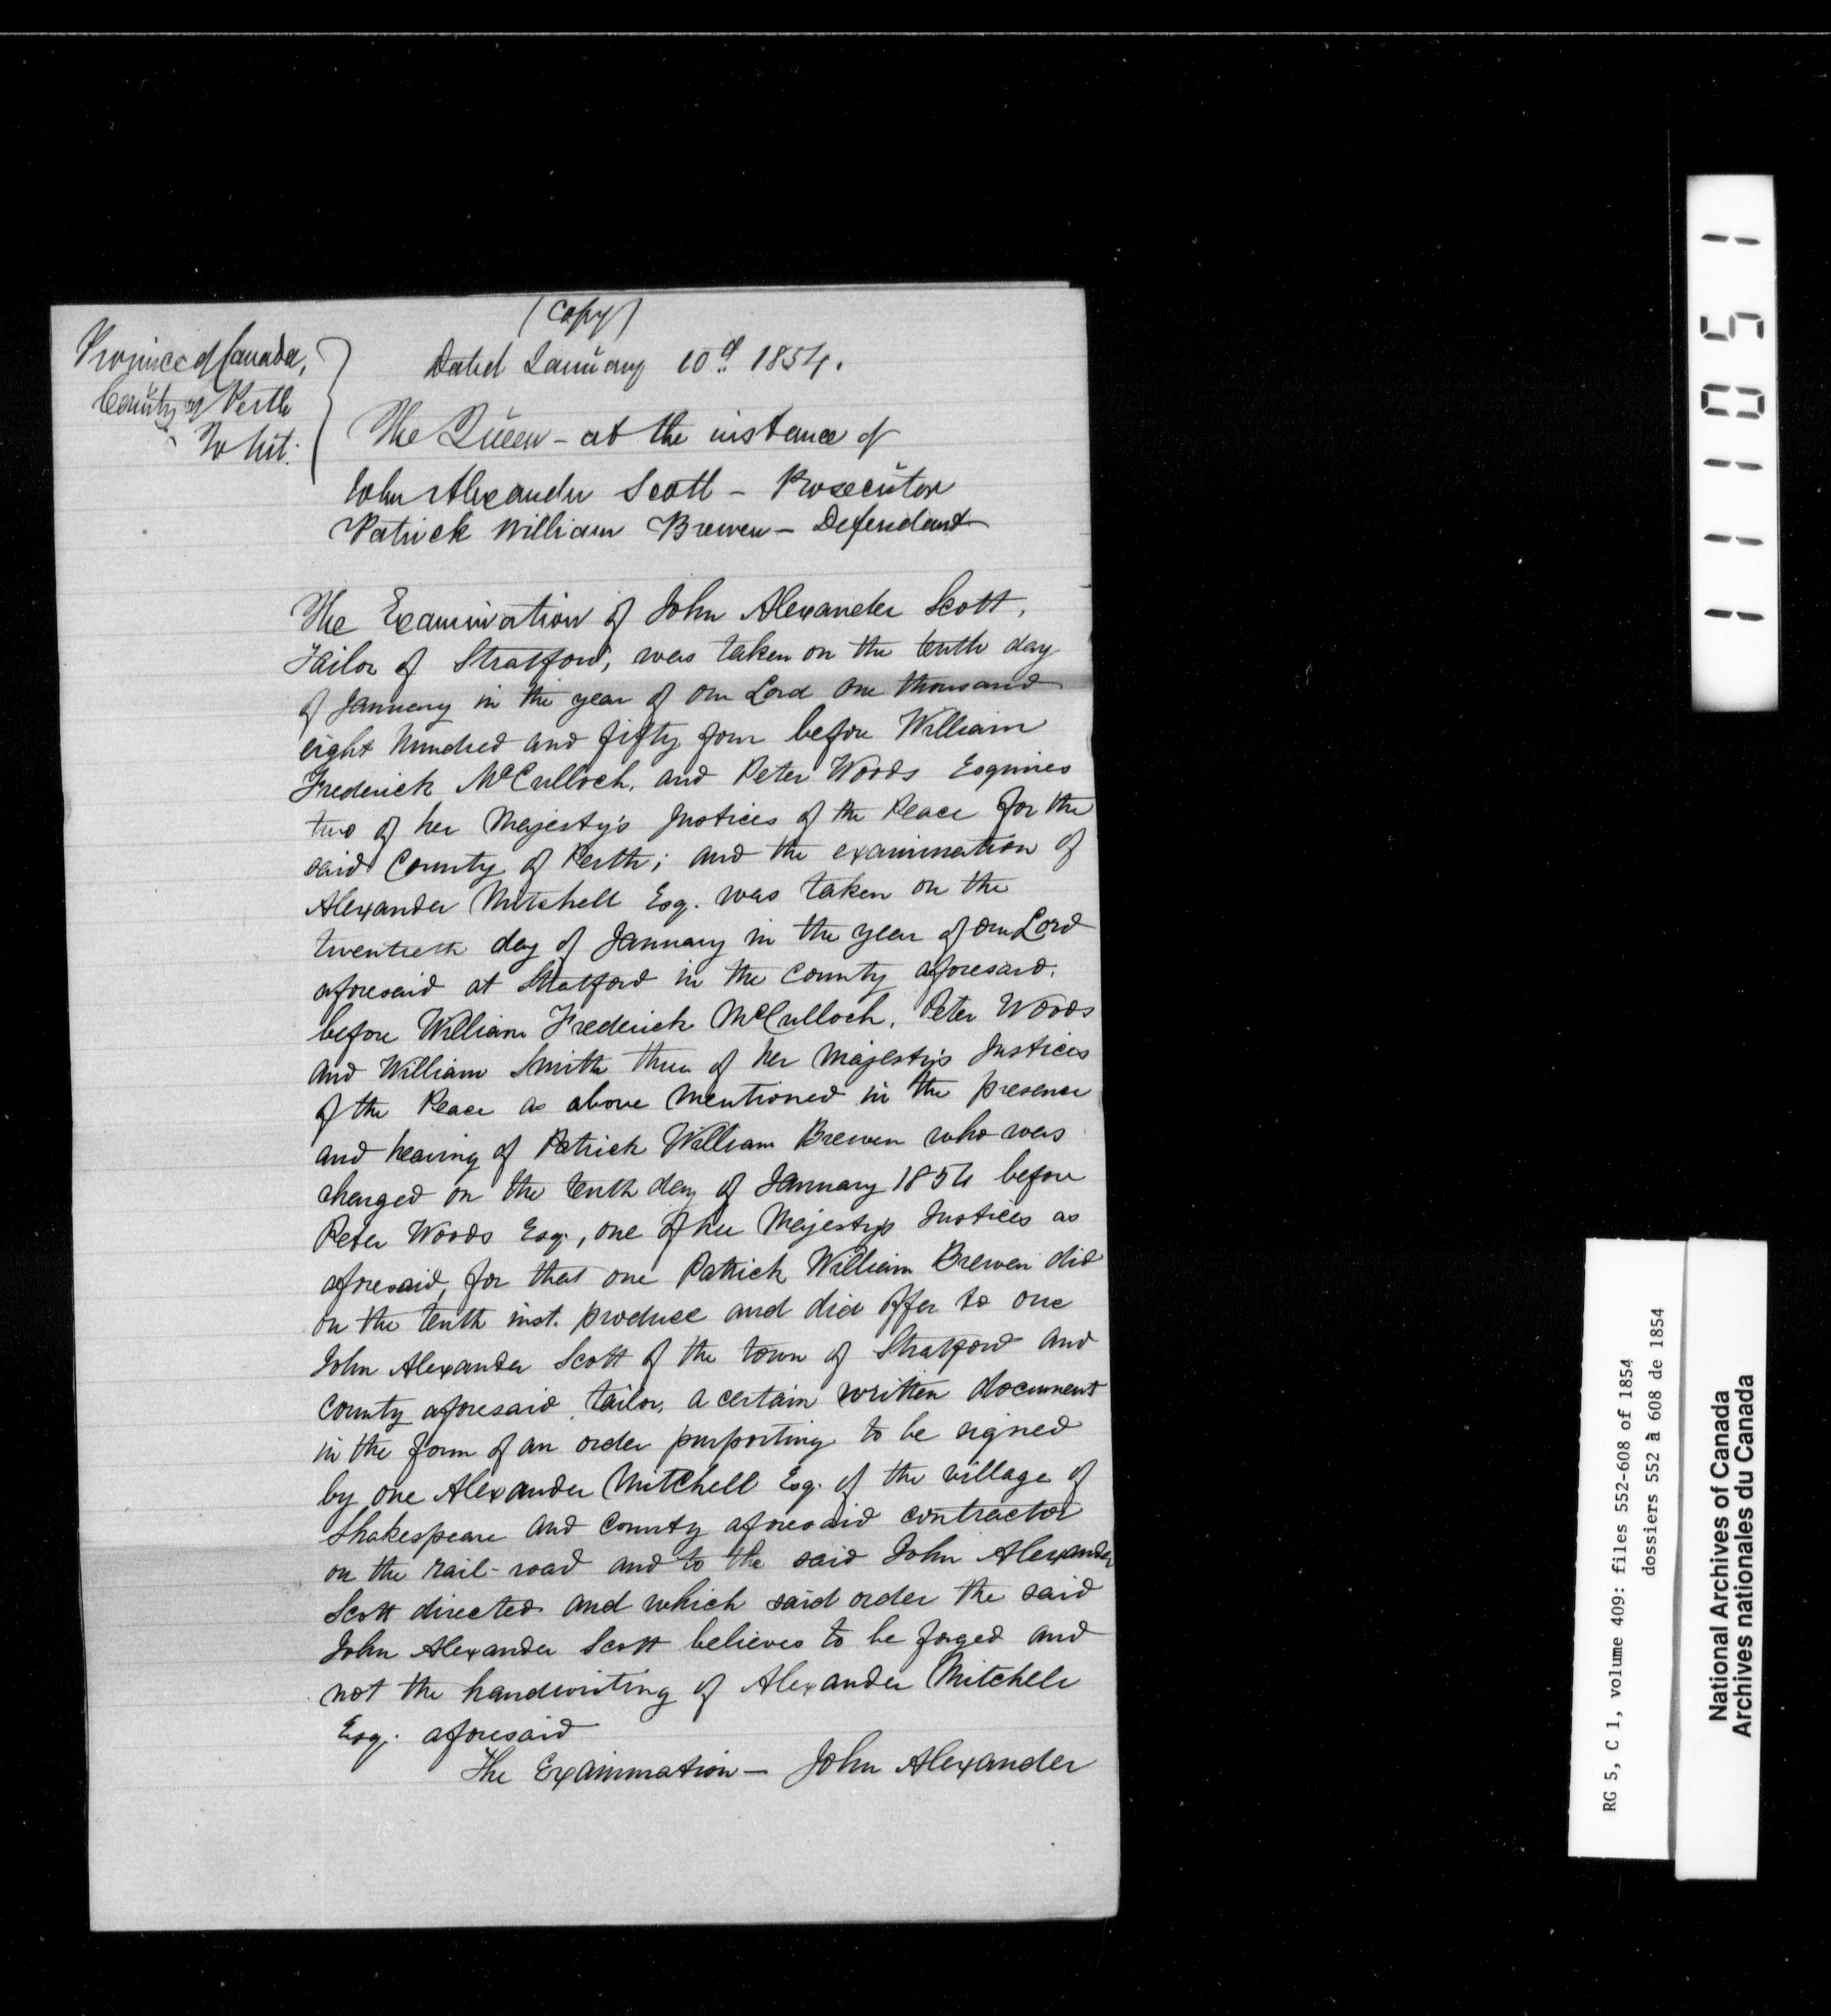 (Copy)
Province of Canada,
County of Perth
To Wit:
Dated January 10th 1854.
The Queen - at the instance of
John Alexander Scott - Prosecutor
Patrick William Brewen - Defendant
The Examination of John Alexander Scott,
Tailor of Stratford, was taken on the tenth day
of January in the year of our Lord one thousand
eight hundred and fifty four before William
Frederick McCulloch, and Peter Woods Esquires
two of her Majesty's Justices of the Peace for the
said County of Perth; and the examination of
Alexander Mitchell Esq. was taken on the
twentieth day of January in the year of our Lord
aforesaid at Stratford in the County aforesaid,
before William Frederick McCulloch, Peter Woods
and William Smith three of her Majesty's Justices
of the Peace as above mentioned in the presence
and hearing of Patrick William Brewen who was
charged on the tenth day of January 1854 before
Peter Woods Esq., one of her Majesty's Justices as
aforesaid, for that one Patrick William Brewen did
on the tenth inst. produce and did offer to one
John Alexander Scott of the town of Stratford and
county aforesaid, tailor, a certain written document
in the form of an order purporting to be signed
by one Alexander Mitchell Esq. of the village of
Shakespeare and County aforesaid contractor
on the rail-road and to the said John Alexander
Scott directed and which said order the said
John Alexander Scott believes to be forged and
not the handwriting of Alexander Mitchell
Esq. aforesaid
The Examination - John Alexander
1 1 1 0 5 1
RG 5, C 1, volume 409: files 552-608 of 1854
dossiers 552 à 608 de 1854
National Archives of Canada
Archives nationales du Canada